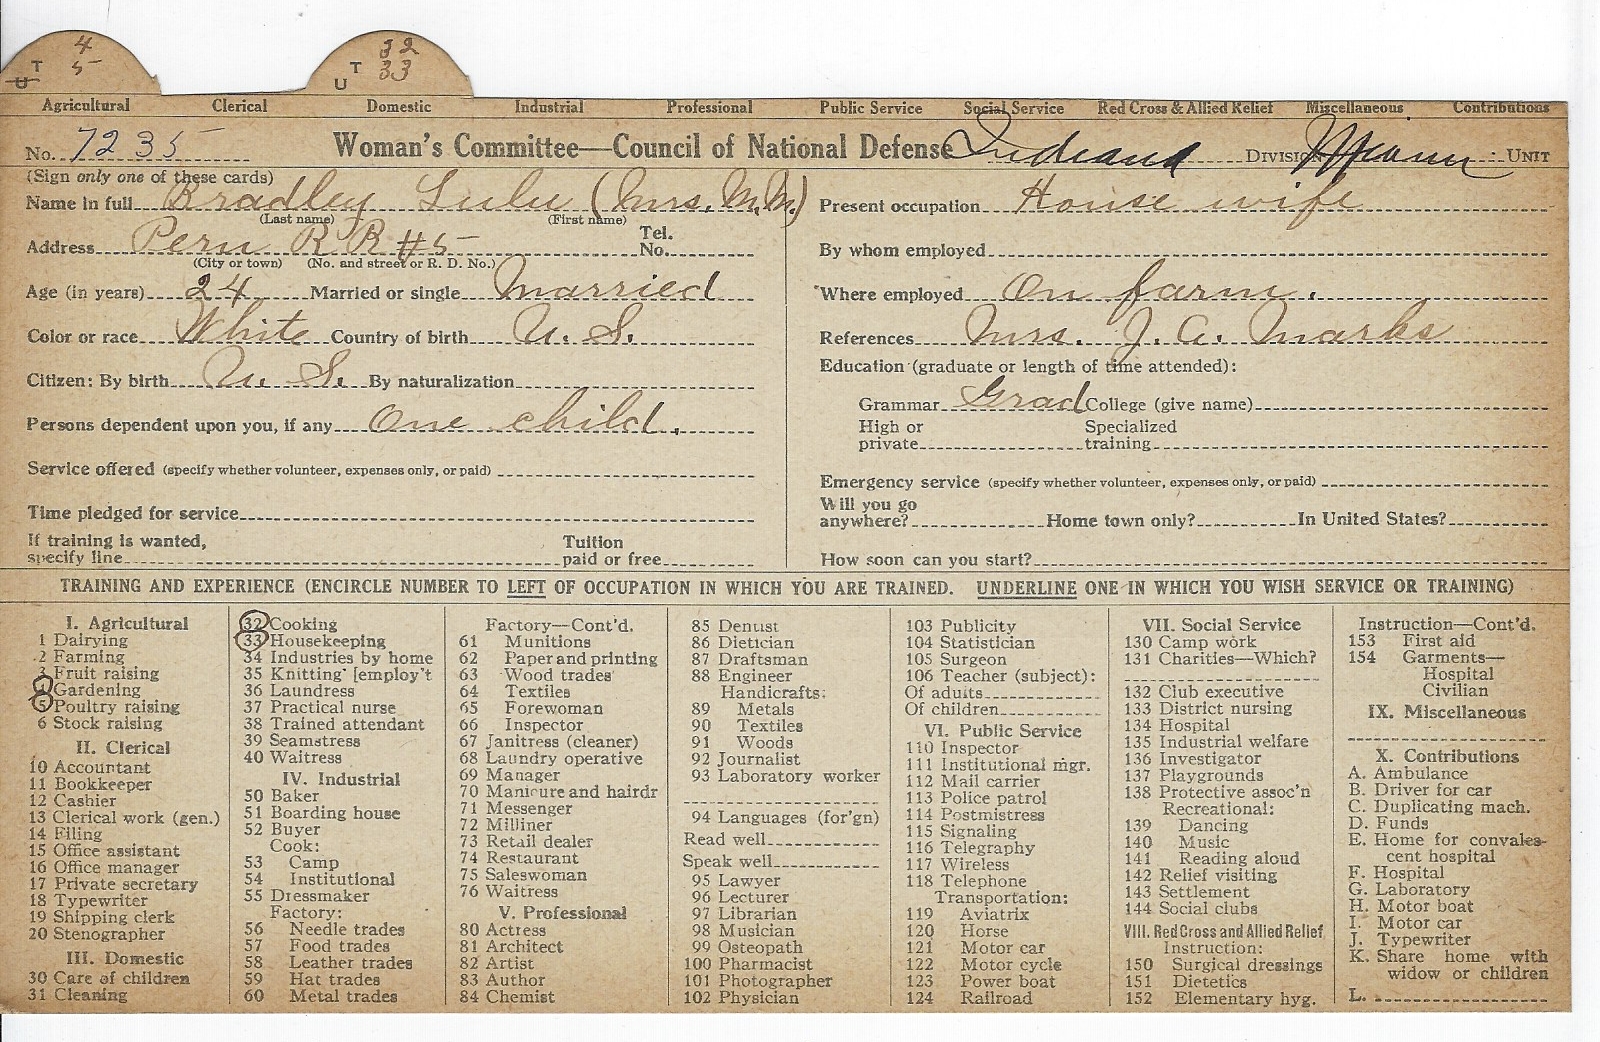 4 32
T 5 T 33
U U
Agricultural Clerical Domestic Industrial Professional Public Service Social Service Red Cross & Allied Relief Miscellaneous Contributions
No. 7235 Woman's Committee—Council of National Defense Indiana DIVISION Miami UNIT
(Sign only one of these cards)
Name in full Bradley Lulu (Mrs. M.M.)
(Last name) (First name)
Address Peru R R #5 Tel. No.
(City or town) (No. and street or R. D. No.)
Age (in years) 24 Married or single Married
Color or race White Country of birth U. S.
Citizen: By birth U. S. By naturalization
Persons dependent upon you, if any One child.
Service offered (specify whether volunteer, expenses only, or paid)
Time pledged for service
If training is wanted,
specify line Tuition paid or free
Present occupation House wife
By whom employed
Where employed On farm.
References Mrs. J. A. Marks
Education (graduate or length of time attended):
Grammar Grad College (give name)
High or private Specialized training
Emergency service (specify whether volunteer, expenses only, or paid)
Will you go anywhere? Home town only? In United States?
How soon can you start?
TRAINING AND EXPERIENCE (ENCIRCLE NUMBER TO LEFT OF OCCUPATION IN WHICH YOU ARE TRAINED. UNDERLINE ONE IN WHICH YOU WISH SERVICE OR TRAINING)
I. Agricultural
1 Dairying
2 Farming
3 Fruit raising
4 Gardening
5 Poultry raising
6 Stock raising
II. Clerical
10 Accountant
11 Bookkeeper
12 Cashier
13 Clerical work (gen.)
14 Filing
15 Office assistant
16 Office manager
17 Private secretary
18 Typewriter
19 Shipping clerk
20 Stenographer
III. Domestic
30 Care of children
31 Cleaning
32 Cooking
33 Housekeeping
34 Industries by home
35 Knitting [employ't
36 Laundress
37 Practical nurse
38 Trained attendant
39 Seamstress
40 Waitress
IV. Industrial
50 Baker
51 Boarding house
52 Buyer
Cook:
53 Camp
54 Institutional
55 Dressmaker
Factory:
56 Needle trades
57 Food trades
58 Leather trades
59 Hat trades
60 Metal trades
Factory—Cont'd.
61 Munitions
62 Paper and printing
63 Wood trades
64 Textiles
65 Forewoman
66 Inspector
67 Janitress (cleaner)
68 Laundry operative
69 Manager
70 Manicure and hairdr
71 Messenger
72 Milliner
73 Retail dealer
74 Restaurant
75 Saleswoman
76 Waitress
V. Professional
80 Actress
81 Architect
82 Artist
83 Author
84 Chemist
85 Dentist
86 Dietician
87 Draftsman
88 Engineer
Handicrafts:
89 Metals
90 Textiles
91 Woods
92 Journalist
93 Laboratory worker
94 Languages (for'gn)
Read well
Speak well
95 Lawyer
96 Lecturer
97 Librarian
98 Musician
99 Osteopath
100 Pharmacist
101 Photographer
102 Physician
103 Publicity
104 Statistician
105 Surgeon
106 Teacher (subject):
Of adults
Of children
VI. Public Service
110 Inspector
111 Institutional mgr.
112 Mail carrier
113 Police patrol
114 Postmistress
115 Signaling
116 Telegraphy
117 Wireless
118 Telephone
Transportation:
119 Aviatrix
120 Horse
121 Motor car
122 Motor cycle
123 Power boat
124 Railroad
VII. Social Service
130 Camp work
131 Charities—Which?
132 Club executive
133 District nursing
134 Hospital
135 Industrial welfare
136 Investigator
137 Playgrounds
138 Protective assoc'n
Recreational:
139 Dancing
140 Music
141 Reading aloud
142 Relief visiting
143 Settlement
144 Social clubs
VIII. Red Cross and Allied Relief
Instruction:
150 Surgical dressings
151 Dietetics
152 Elementary hyg.
Instruction—Cont'd.
153 First aid
154 Garments—
Hospital
Civilian
IX. Miscellaneous
X. Contributions
A. Ambulance
B. Driver for car
C. Duplicating mach.
D. Funds
E. Home for convales-
cent hospital
F. Hospital
G. Laboratory
H. Motor boat
I. Motor car
J. Typewriter
K. Share home with
widow or children
L.